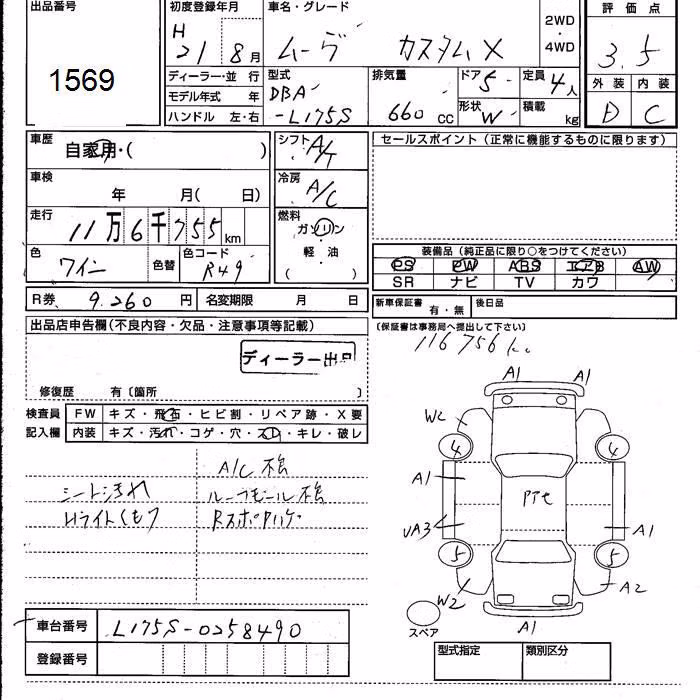 出品番号
1569
初度登録年月
H 21 8月
車名・グレード
ムーヴ カスタムX
2WD・4WD
評価点
3.5
ディーラー・並行
モデル年式 年
ハンドル 左・右
型式
DBA
-L175S
排気量
660 CC
ドア 5
形状 W
定員 4人
積載 kg
外装 内装
D C
車歴
自家用・( )
車検
年 月( 日)
走行
11万6千755 km
色
ワイン
色替
色コード
R49
シフト
A/T
冷房
A/C
燃料
ガソリン
軽油
( )
セールスポイント (正常に機能するものに限ります)
装備品 (純正品に限り○をつけてください)
PS PW ABS エアB AW
SR ナビ TV カワ
R券 9.260 円 名変期限 月 日
新車保証書 有・無
後日品
(保証書は事務局へ提出して下さい)
116756k
出品店申告欄(不良内容・欠品・注意事項等記載)
ディーラー出品
修復歴 有〔箇所 〕
検査員記入欄
FW キズ・飛石・ヒビ割・リペア跡・X要
内装 キズ・汚れ・コゲ・穴・スレ・キレ・破レ
A/C 不良
シート汚れ ルーフモール不良
Hライトくもり
A1 A1
W2
4 4
A1
PTC
UA3 A1
5 5
W2 A2
A1
スペア
車台番号 L175S-0258490
登録番号
型式指定 類別区分